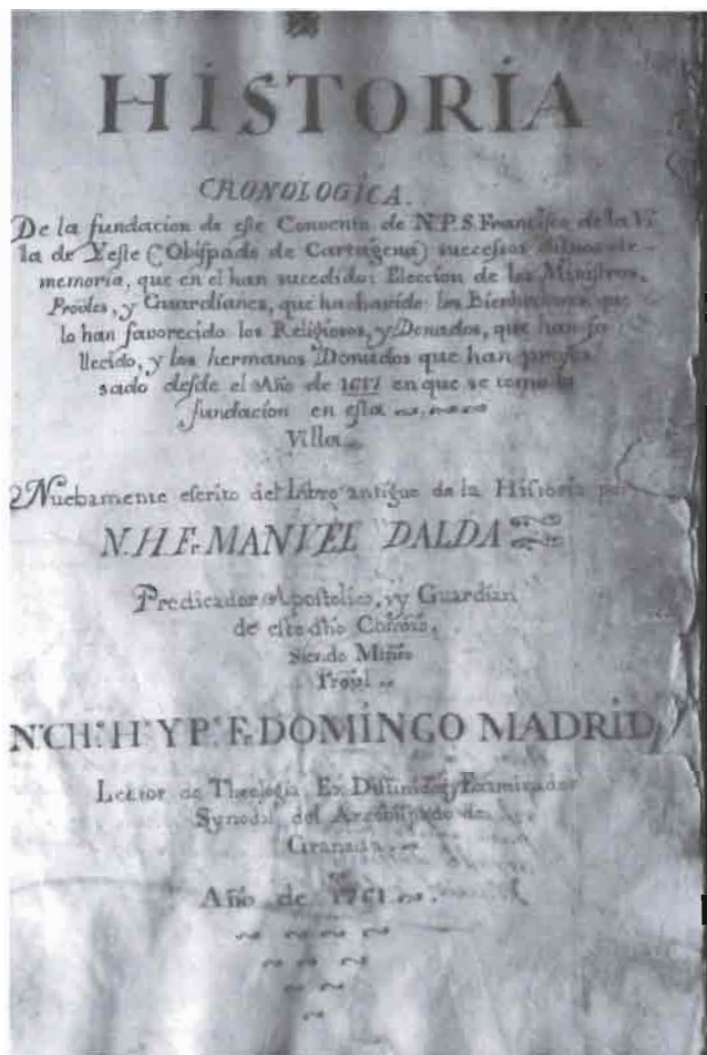 HISTORIA
CRONOLOGICA.
De la fundacion de este Convento de N.P.S. Francisco de la Vi
lla de Yeste (Obispado de Cartagena) successos dignos de
memoria, que en el han sucedido: Eleccion de los Ministros,
Provles, y Guardianes, que ha havido: los Bienhechores que
lo han favorecido los Religiosos, y Donados, que han fa
llecido, y los hermanos Donados que han profes
sado desde el Año de 1617 en que se tomo la
fundacion en esta
Villa
Nuebamente escrito del Libro antiguo de la Historia por
N. H. Fr. MANVEL DALDA
Predicador Apostolico, y Guardian
de este dho Convto.
Siendo Minro
Provl
N. CH. H. Y P. Fr. DOMINGO MADRID,
Lector de Theologia Ex Difinidor y Examinador
Synodal del Arzobispado de
Granada
Año de 1761